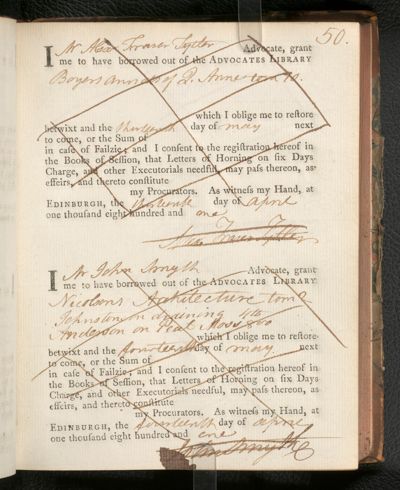 50.
I Mr Alexr Fraser Tytler Advocate, grant
me to have borrowed out of the ADVOCATES LIBRARY
Boyers annals of Q. Anne tom 10.
which I oblige me to reſtore
betwixt and the thirteenth day of may next
to come, or the Sum of
in caſe of Failzie; and I conſent to the regiſtration hereof in
the Books of Seſſion, that Letters of Horning on ſix Days
Charge, and other Executorials needful, may paſs thereon, as-
effeirs, and thereto conſtitute
my Procurators. As witneſs my Hand, at
EDINBURGH, the day of april
one thouſand eight hundred and one
Alexr Fraser Tytler
I Mr John Smyth Advocate, grant
me to have borrowed out of the ADVOCATES LIBRARY
Nicolsons Architecture tom 2
Johnston on draining 4to
Anderson on Peat Moss 8vo
which I oblige me to reſtore
betwixt and the fourteenth day of may next
to come, or the Sum of
in caſe of Failzie; and I conſent to the regiſtration hereof in
the Books of Seſſion, that Letters of Horning on ſix Days
Charge, and other Executorials needful, may paſs thereon, as
effeirs, and thereto conſtitute
my Procurators. As witneſs my Hand, at
EDINBURGH, the fourteenth day of april
one thouſand eight hundred and one
John Smyth